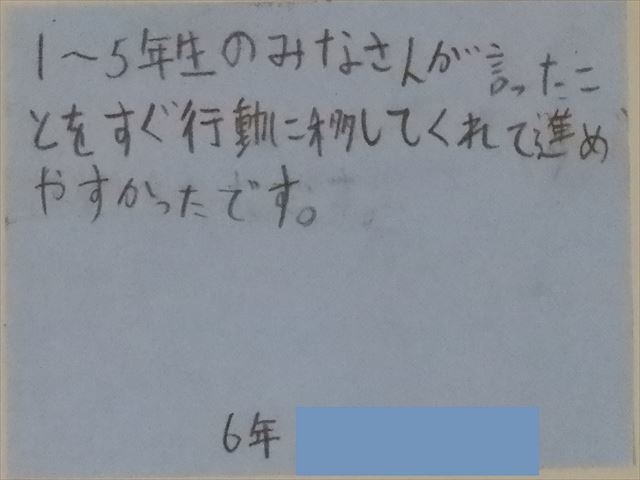 1～5年生のみなさんが言ったこ
とをすぐ行動に移してくれて進め
やすかったです。
6年